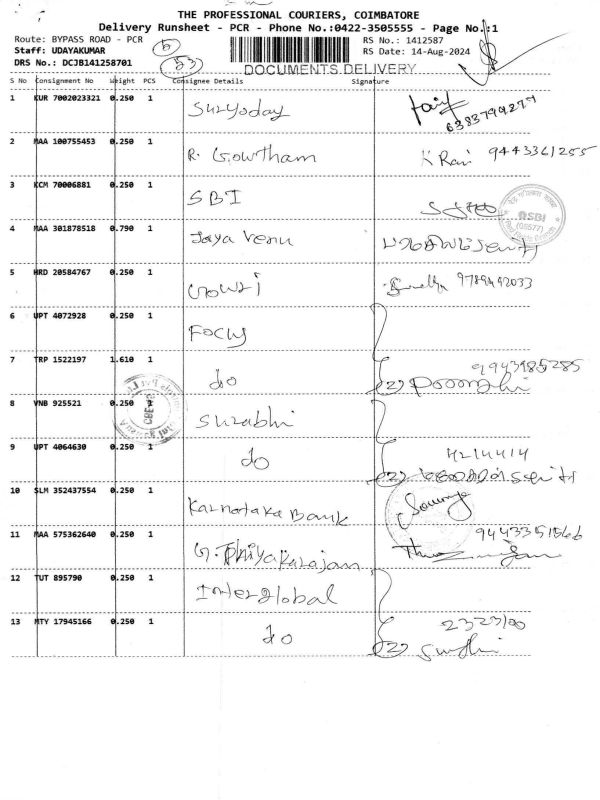 THE PROFESSIONAL COURIERS, COIMBATORE
Delivery Runsheet - PCR - Phone No.:0422-3505555 - Page No.:1
Route: BYPASS ROAD - PCR RS No.: 1412587
Staff: UDAYAKUMAR RS Date: 14-Aug-2024
DRS No.: DCJB141258701 53
DOCUMENTS DELIVERY
S No Consignment No Weight PCS Consignee Details Signature
1 KUR 7002023321 0.250 1 Suryoday
2 MAA 100755453 0.250 1 R. Gowtham K Ravi 9443361255
3 KCM 70006881 0.250 1 SBI
SBI
(05577)
4 MAA 301878518 0.790 1 Jaya Venu
5 HRD 20584767 0.250 1 Gowri 9789492033
6 UPT 4072928 0.250 1 Focus
7 TRP 1522197 1.610 1 do 9943985285
8 VNB 925521 0.250 1 Surabhi
9 UPT 4064630 0.250 1 do 4214414
10 SLM 352437554 0.250 1 Karnataka Bank
11 MAA 575362640 0.250 1 G. Thiyakarajan
12 TUT 895790 0.250 1 Interglobal
13 MTY 17945166 0.250 1 do 2323100